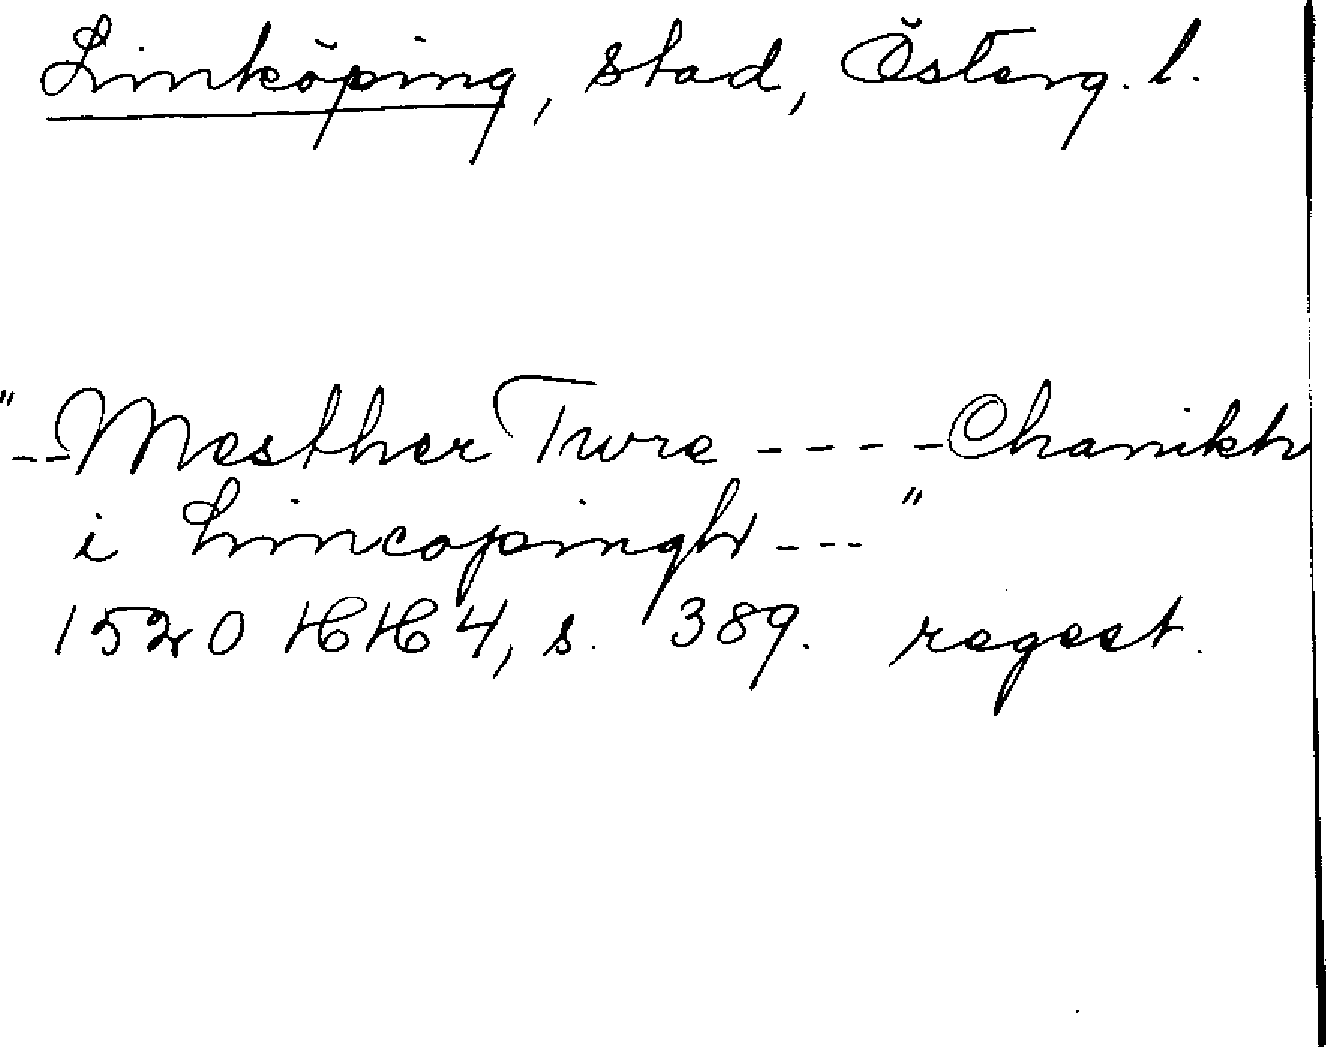 Linköping, stad, Österg. l.
"--Mesther Twre ----Chanikh
i Lincopingh---"
1520 HH 4, s. 389. regest.